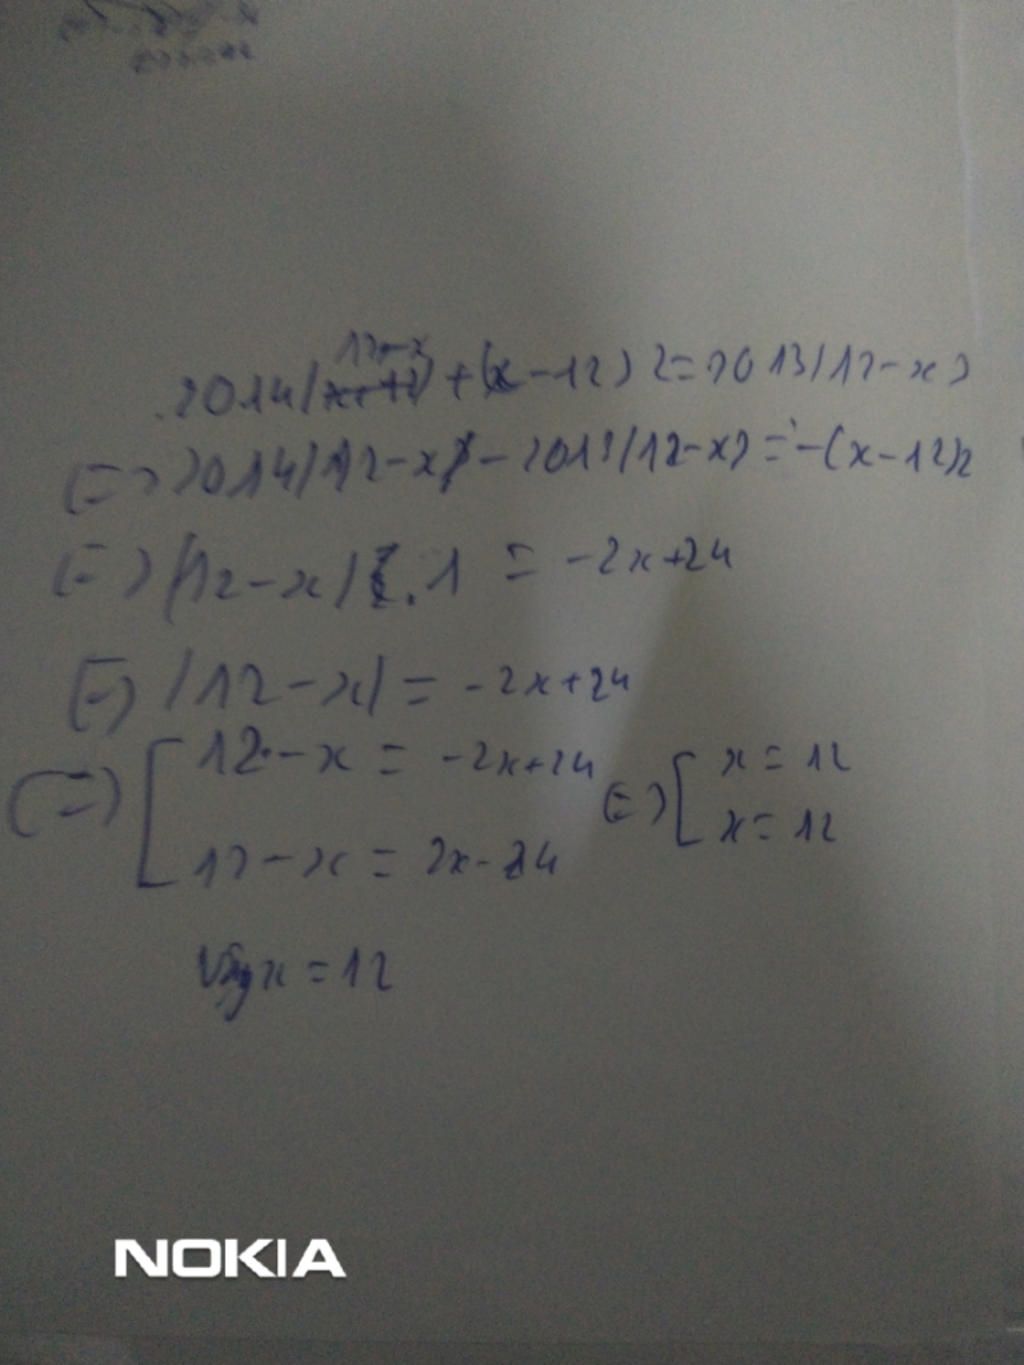 2014|12-x| + (x-12)2=2013|12-x|
(=) 2014|12-x| - 2013|12-x| = -(x-12)2
(=) |12-x|.1 = -2x+24
(=) |12-x| = -2x+24
(=) [ 12-x = -2x+24 (=) [ x = 12
12-x = 2x-24 x = 12
Vậy x = 12
NOKIA